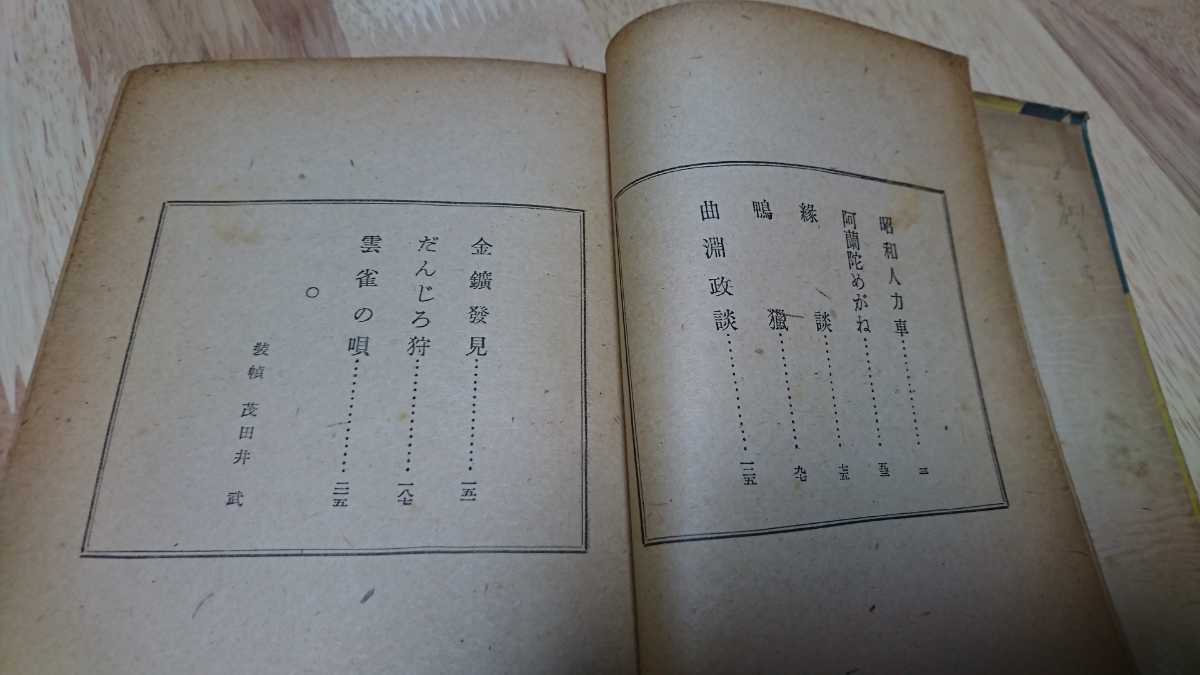 昭和人力車…………三
阿蘭陀めがね…………五三
緣談…………七五
鴨獵…………九七
曲淵政談…………一二五
金鑛發見…………一五一
だんじろ狩…………一八七
雲雀の唄…………二一五
○
裝幀 茂田井 武